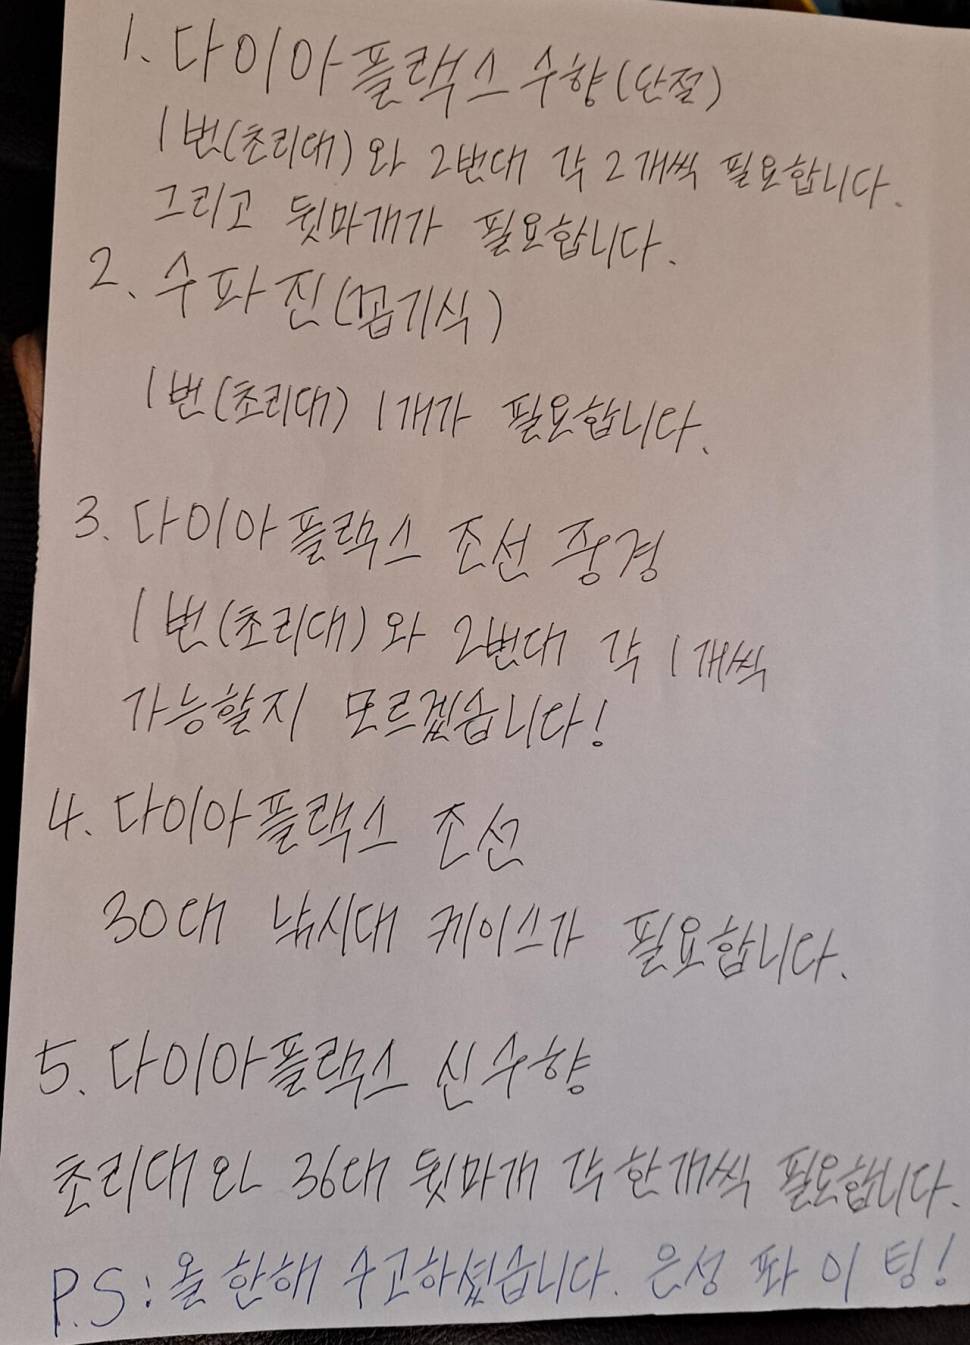 1. 다이아플랙스 수향(단절)
1번(초리대)와 2번대 각 2개씩 필요합니다.
그리고 뒷마개가 필요합니다.
2. 수파 진(꼽기식)
1번(초리대) 1개가 필요합니다.
3. 다이아플랙스 조선 중경
1번(초리대)와 2번대 각 1개씩
가능할지 모르겠습니다!
4. 다이아플랙스 조선
30대 낚시대 케이스가 필요합니다.
5. 다이아플랙스 신수향
초리대와 36대 뒷마개 각 한개씩 필요합니다.
P.S: 올 한해 수고하셨습니다. 은성 퐈이팅!